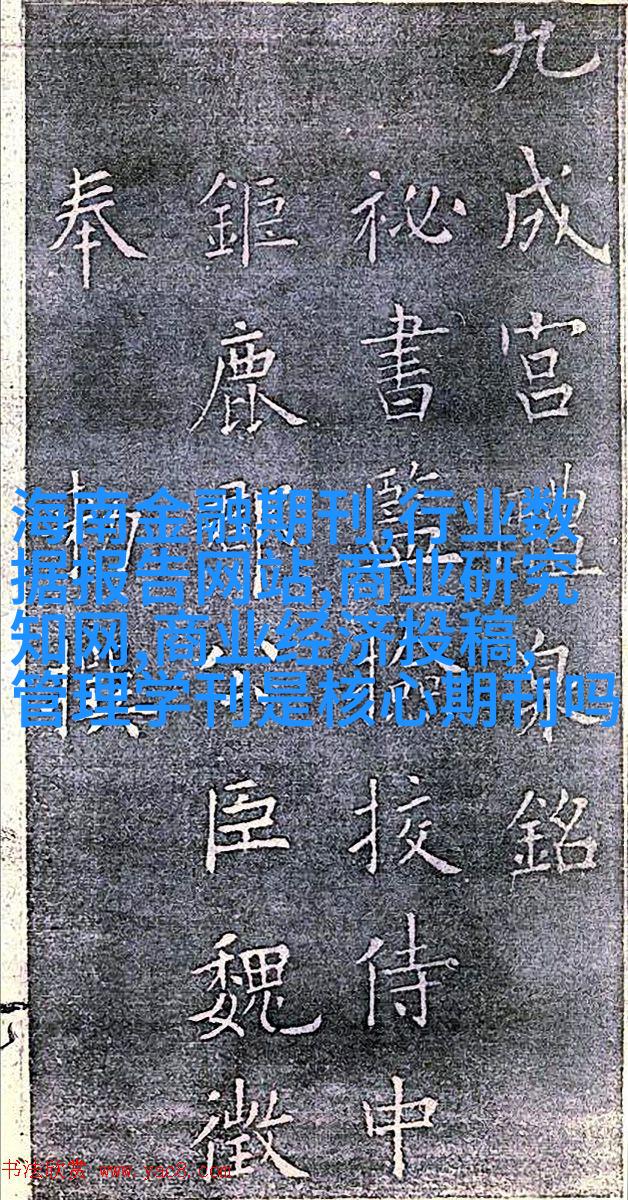 九成宮醴泉銘
祕書監檢挍侍中
鉅鹿郡公臣魏徵
奉勑撰
海南金融期刊,行业数
据报告网站,商业研究
知网,商业经济投稿,
管理学刊是核心期刊吗
书法欣赏 www.yac8.com